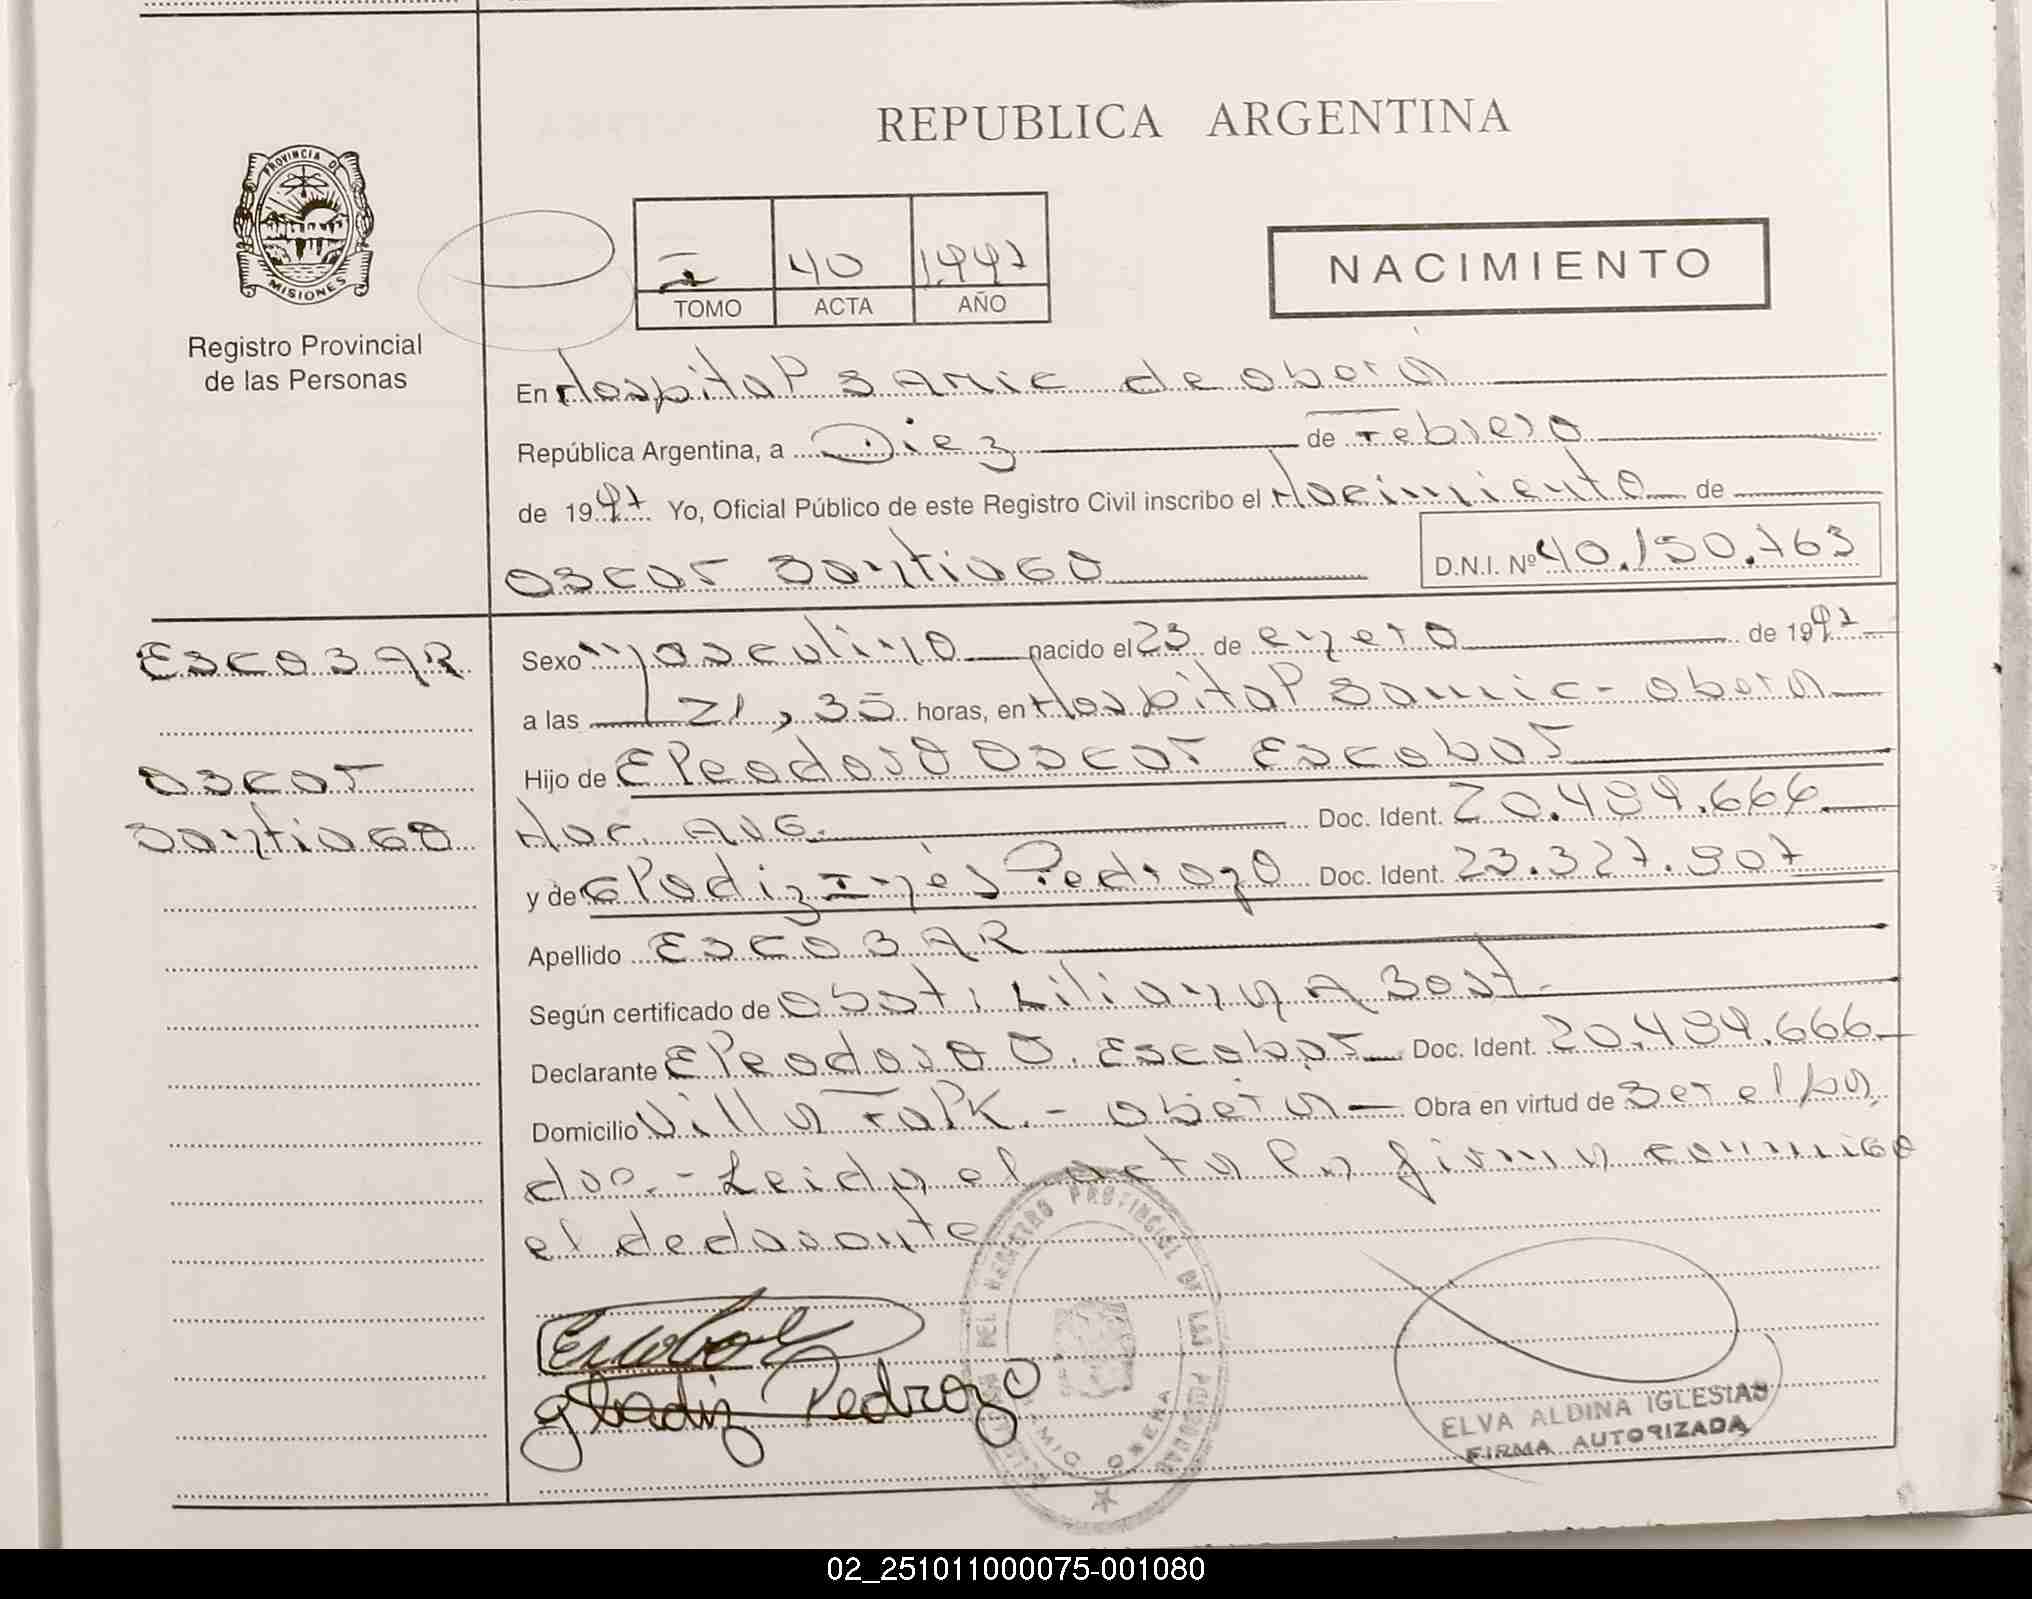 REPUBLICA ARGENTINA
PROVINCIA DE
MISIONES
Registro Provincial
de las Personas
I 40 1997
TOMO ACTA AÑO
NACIMIENTO
En Hospital SAMIC de oberá
República Argentina, a Diez de Febrero
de 1997 Yo, Oficial Público de este Registro Civil inscribo el Nacimiento de
oscar santiago D.N.I. Nº 40.150.763
ESCOBAR
oscar
santiago
Sexo Masculino nacido el 23 de enero de 1997
a las 21,35 horas, en Hospital Samic - obera
Hijo de Eleodoro Oscar Escobar
Nac. ARG. Doc. Ident. 20.484.666
y de Gladiz Inés Pedrozo Doc. Ident. 23.327.907
Apellido ESCOBAR
Según certificado de obst. Liliana A Bost.
Declarante Eleodoro O. Escobar Doc. Ident. 20.484.666
Domicilio Villa Falk. - obera Obra en virtud de ser el pa
dre. - Leida el acta la firma conmigo
el declarante
Escobar
gladiz Pedrozo
REGISTRO PROVINCIAL DE LAS PERSONAS
ELVA ALDINA IGLESIAS
FIRMA AUTORIZADA
02_251011000075-001080